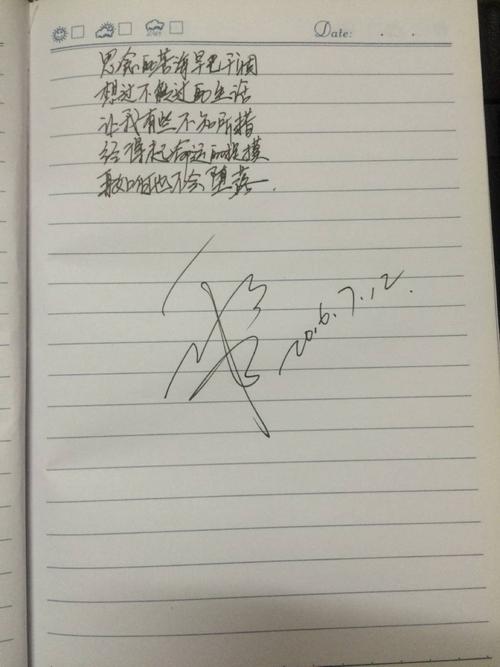 Date: . .
思念的苦海早已干涸
想过不能过的生活
让我有些不知所措
经得起命运的捉摸
我也不会堕落
2016.7.12.